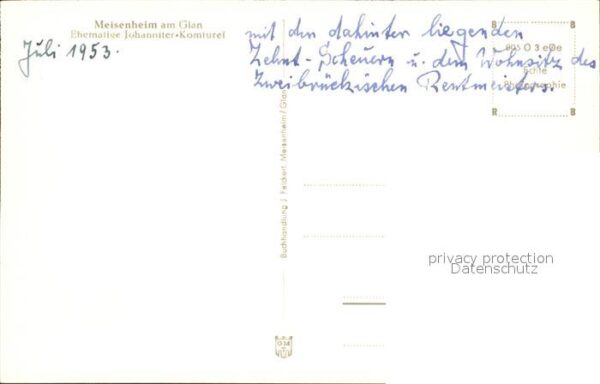 Meisenheim am Glan
Ehemalige Johanniter-Komturei
Juli 1953.
mit den dahinter liegenden
Zehnt-Scheuern u. dem Wohnsitz des
Zweibrückischen Rentmeisters.
O 3 eDe
Echte
Photographie
Buchhandlung J. Feickert Meisenheim/Glan
privacy protection
Datenschutz